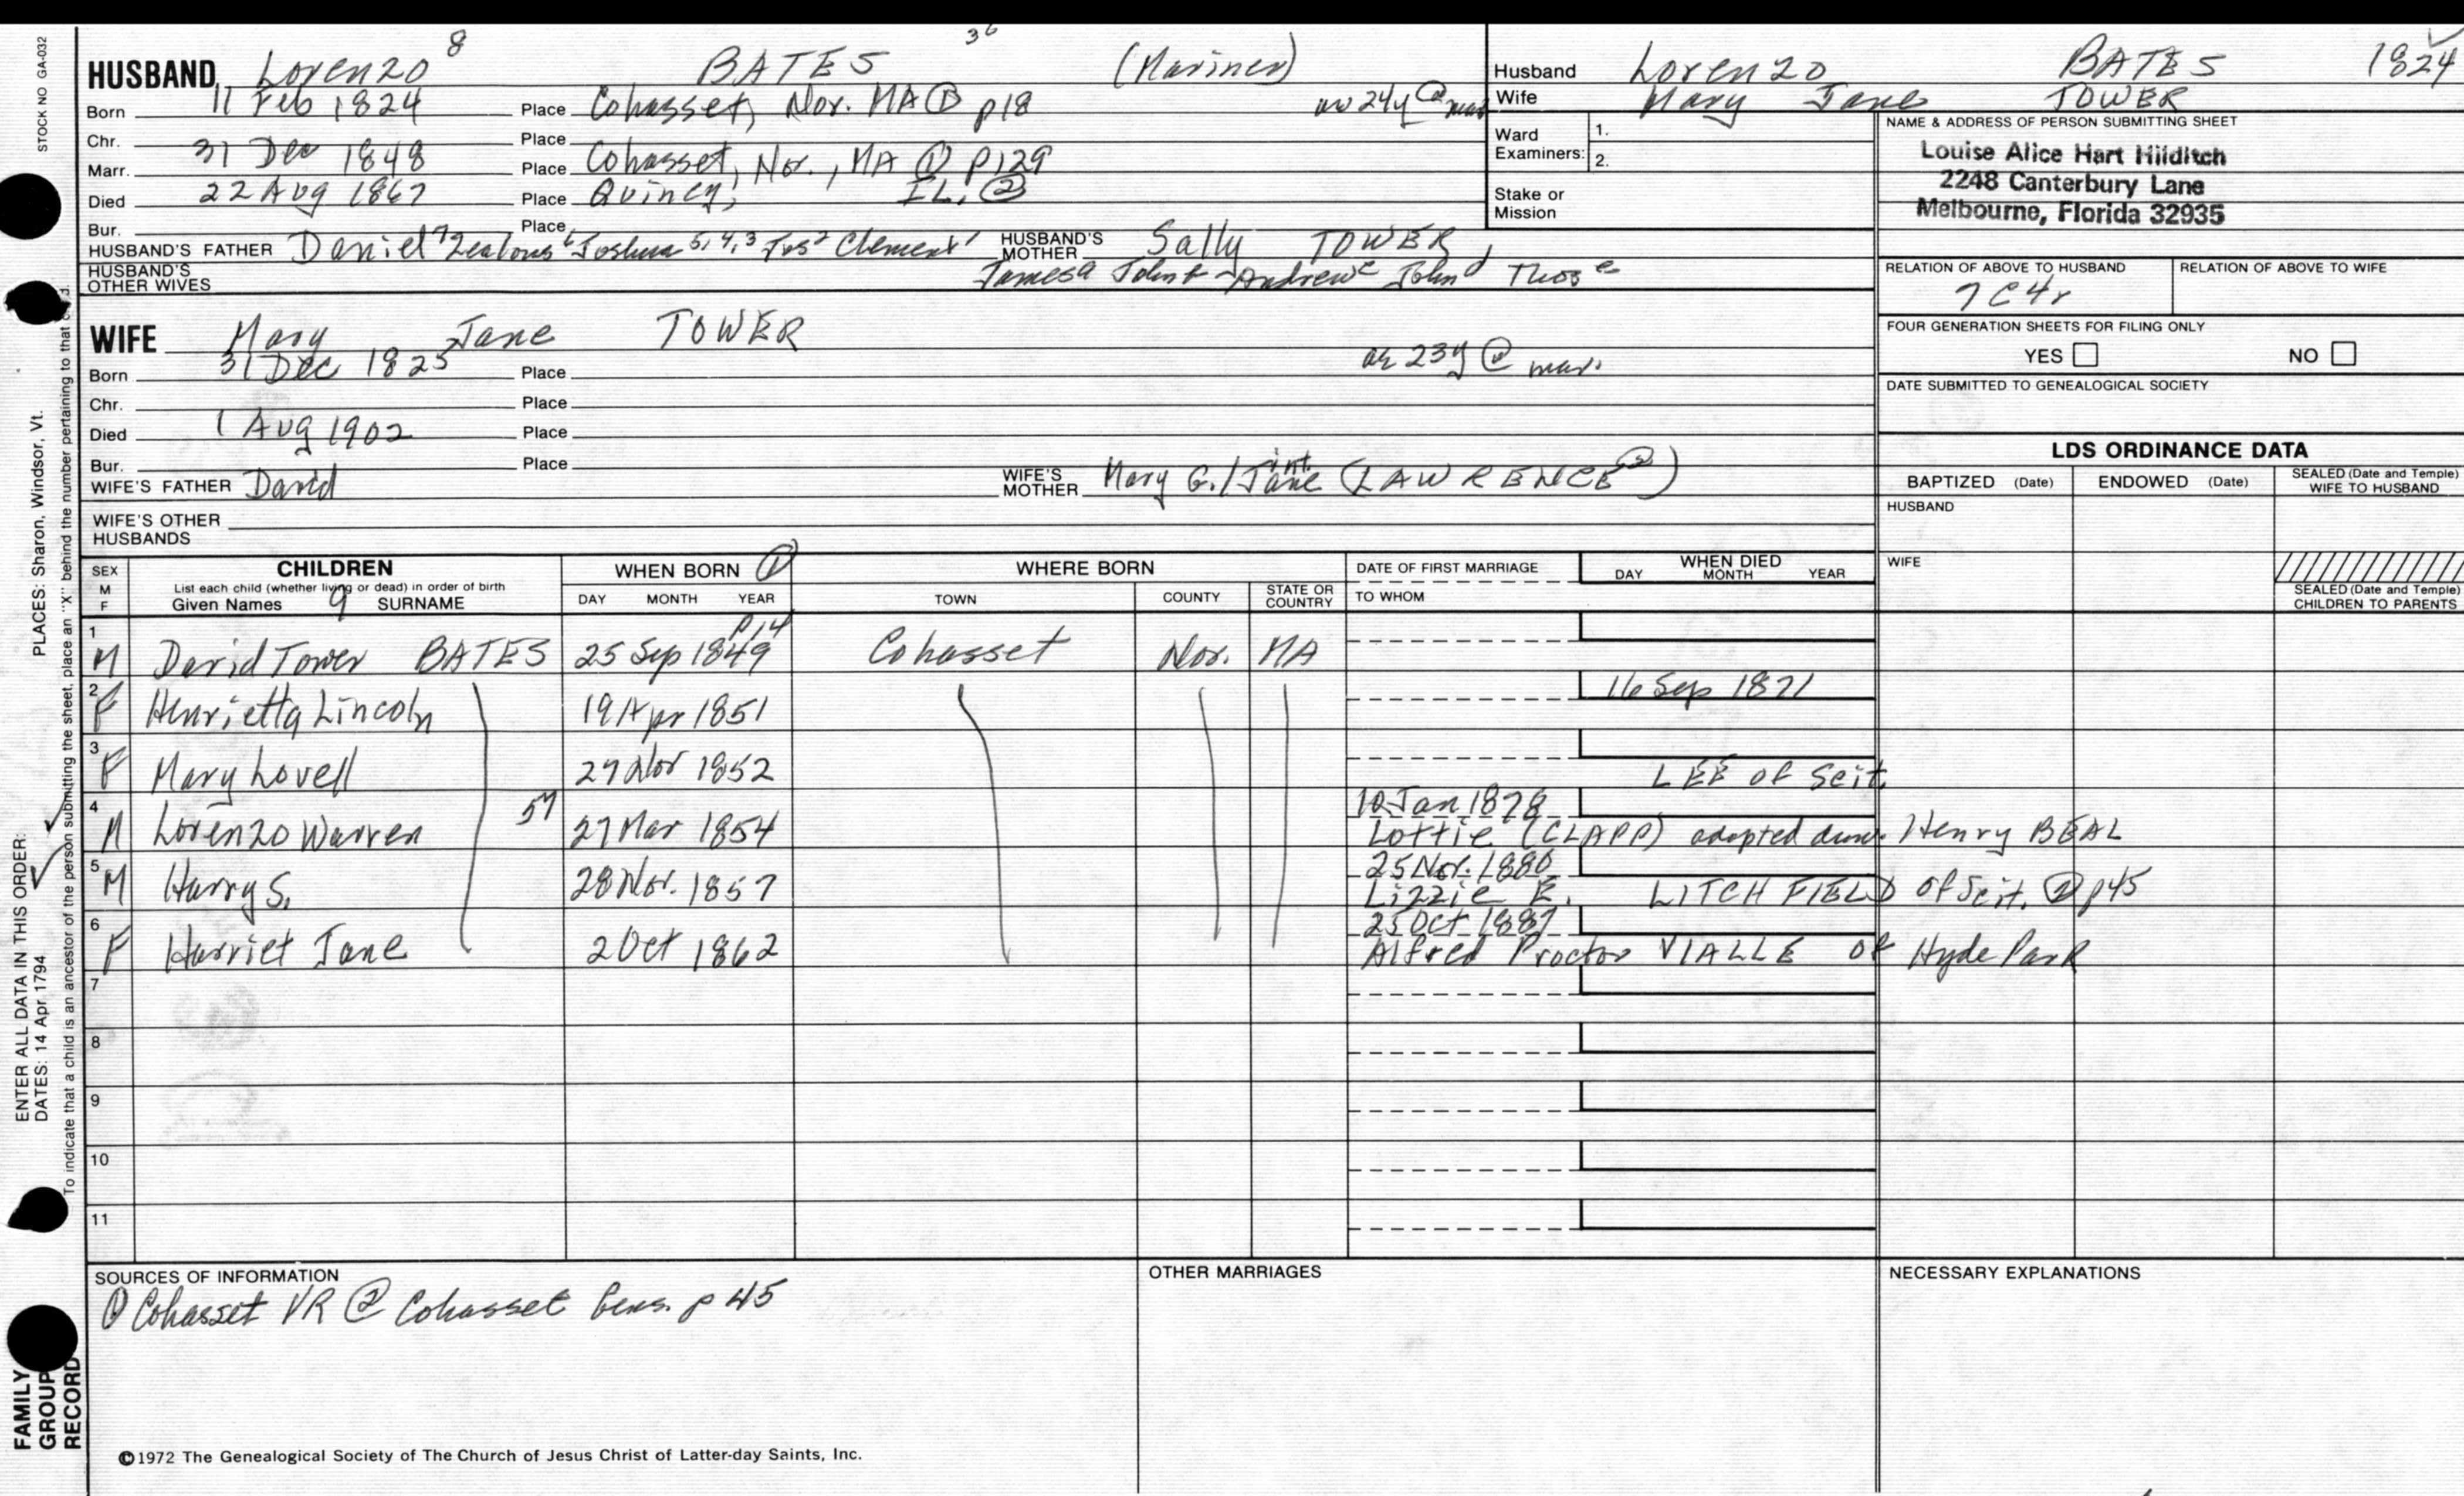 STOCK NO GA-032
8
36
HUSBAND Lorenzo BATES (Mariner)
Born 11 Feb 1824 Place Cohasset, Nor. MA ① p18 24y @ mar
Chr. Place
Marr. 31 Dec 1848 Place Cohasset, Nor., MA ① p129
Died 22 Aug 1867 Place Quincy, IL. ②
Bur. Place
HUSBAND'S FATHER Daniel 7 Zealous 6 Joshua 5,4,3 Jos 2 Clement 1 HUSBAND'S MOTHER Sally TOWER
HUSBAND'S OTHER WIVES James a John b Andrew c John d Thos e
WIFE Mary Jane TOWER
Born 31 Dec 1825 Place ae 23y @ mar.
Chr. Place
Died 1 Aug 1902 Place
Bur. Place
int.
WIFE'S FATHER David WIFE'S MOTHER Mary G. / Jane (LAWRENCE ②)
WIFE'S OTHER HUSBANDS
Husband Lorenzo BATES 1824
Wife Mary Jane TOWER
Ward Examiners: 1.
2.
Stake or Mission
NAME & ADDRESS OF PERSON SUBMITTING SHEET
Louise Alice Hart Hilditch
2248 Canterbury Lane
Melbourne, Florida 32935
RELATION OF ABOVE TO HUSBAND RELATION OF ABOVE TO WIFE
7C4r
FOUR GENERATION SHEETS FOR FILING ONLY
YES NO
DATE SUBMITTED TO GENEALOGICAL SOCIETY
LDS ORDINANCE DATA
BAPTIZED (Date) ENDOWED (Date) SEALED (Date and Temple) WIFE TO HUSBAND
HUSBAND
WIFE
SEALED (Date and Temple) CHILDREN TO PARENTS
SEX M F CHILDREN WHEN BORN ① WHERE BORN DATE OF FIRST MARRIAGE WHEN DIED
List each child (whether living or dead) in order of birth
Given Names 9 SURNAME DAY MONTH YEAR TOWN COUNTY STATE OR COUNTRY TO WHOM DAY MONTH YEAR
p14
1 M David Tower BATES 25 Sep 1849 Cohasset Nor. MA
2 F Henrietta Lincoln 19 Apr 1851 16 Sep 1871
3 F Mary Lovell 27 Nov 1852 LEE of Scit.
10 Jan 1878
4 M Lorenzo Warren 57 27 Mar 1854 Lottie (CLAPP) adopted dau. Henry BEAL
25 Nov. 1880
5 M Harry S. 28 Nov. 1857 Lizzie E. LITCHFIELD of Scit. ② p45
25 Oct 1887
6 F Harriet Jane 2 Oct 1862 Alfred Proctor VIALLE of Hyde Park
7
8
9
10
11
SOURCES OF INFORMATION OTHER MARRIAGES NECESSARY EXPLANATIONS
① Cohasset VR ② Cohasset Gens. p 45
©1972 The Genealogical Society of The Church of Jesus Christ of Latter-day Saints, Inc.
ENTER ALL DATA IN THIS ORDER:
DATES: 14 Apr 1794 PLACES: Sharon, Windsor, Vt.
To indicate that a child is an ancestor of the person submitting the sheet, place an "X" behind the number pertaining to that
FAMILY
GROUP
RECORD